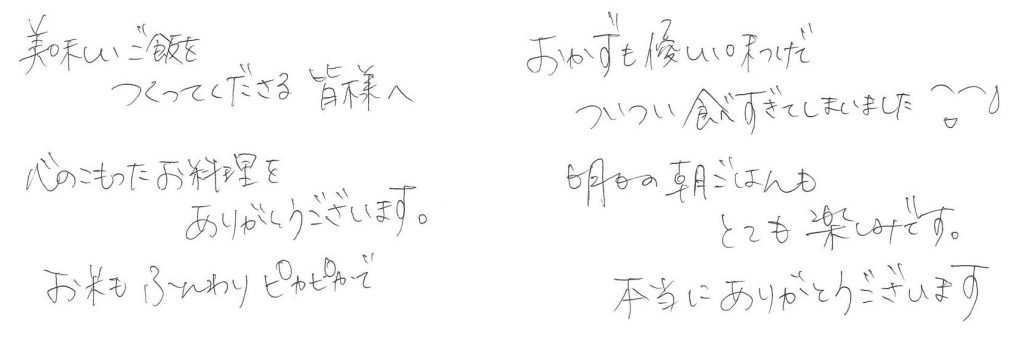 美味しいご飯を
つくってくださる 皆様へ
心のこもったお料理を
ありがとうございます。
お米もふんわりピカピカで
おかずも優しい味つけで
ついつい食べすぎてしまいました
明日の朝ごはんも
とても楽しみです。
本当にありがとうございます